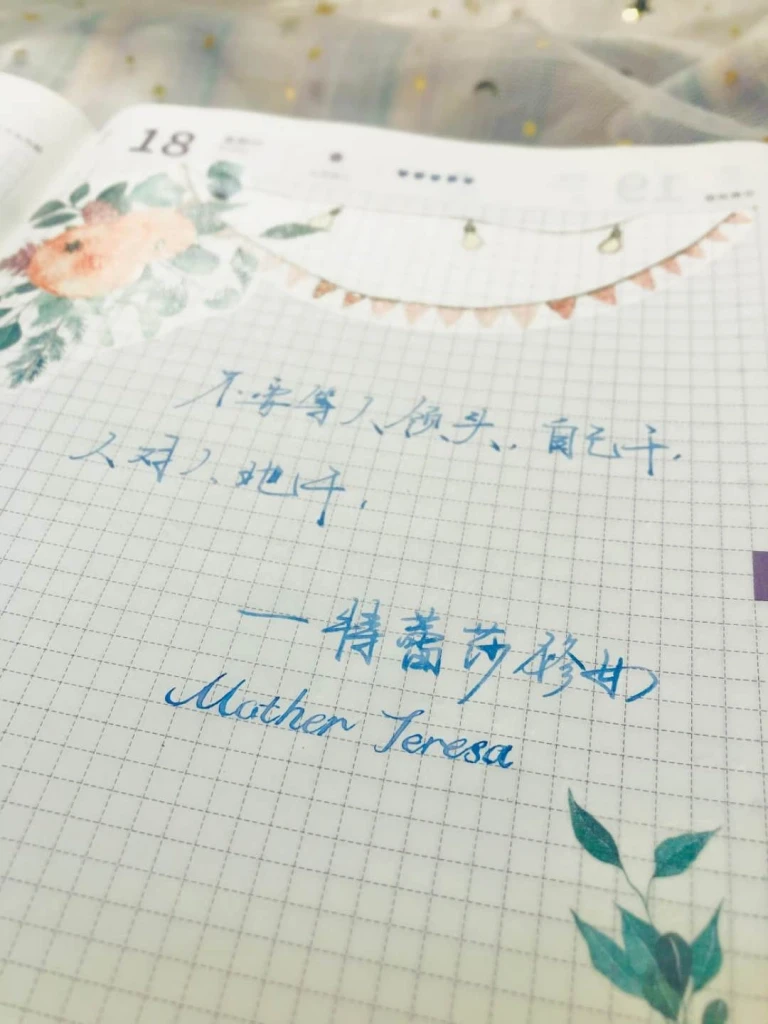 18
不要等人领头，自己干，
人对人地干，
—特蕾莎修女
Mother Teresa